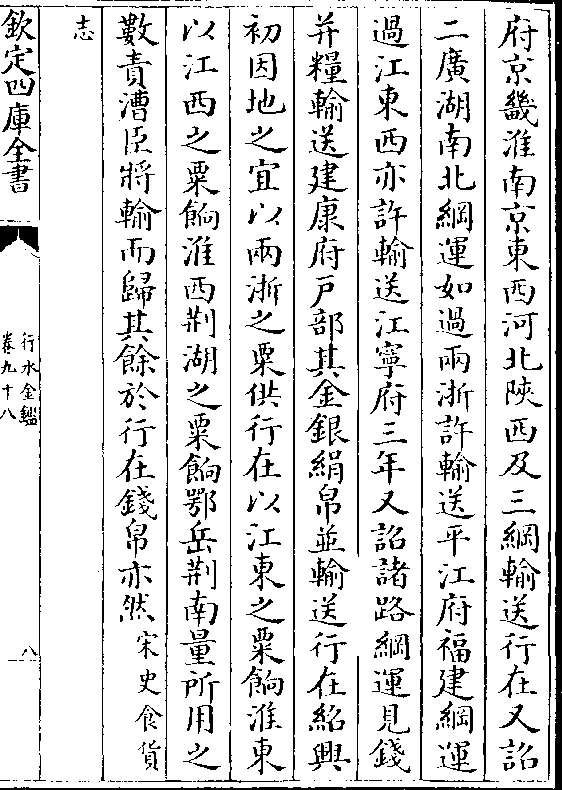 府京畿淮南京東西河北陜西及三綱輸送行在又詔
二廣湖南北綱運如過兩浙許輸送平江府福建綱運
過江東西亦許輸送江寧府三年又詔諸路綱運見錢
并糧輸送建康府戸部其金銀絹帛並輸送行在紹興
初因地之宜以兩浙之粟供行在以江東之粟餉淮東
以江西之粟餉淮西荆湖之粟餉鄂岳荆南量所用之
數責漕臣將輸而歸其餘於行在錢帛亦然宋史食貨
志
欽定四庫全書
行水金鑑
卷九十八
八